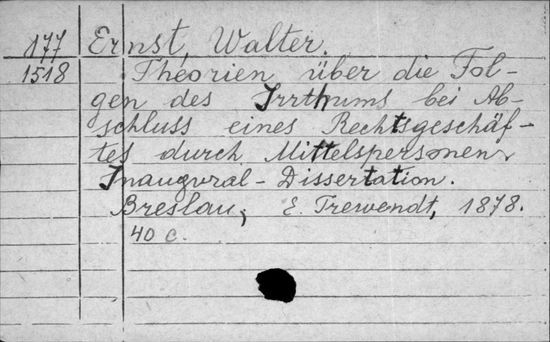 177 Ernst, Walter.
1518 Theorien über die Fol-
gen des Irrthums bei Ab-
schluss eines Rechtsgeschäf-
tes durch Mittelspersonen.
Inaugural-Dissertation.
Breslau, E. Trewendt, 1878.
40 c.